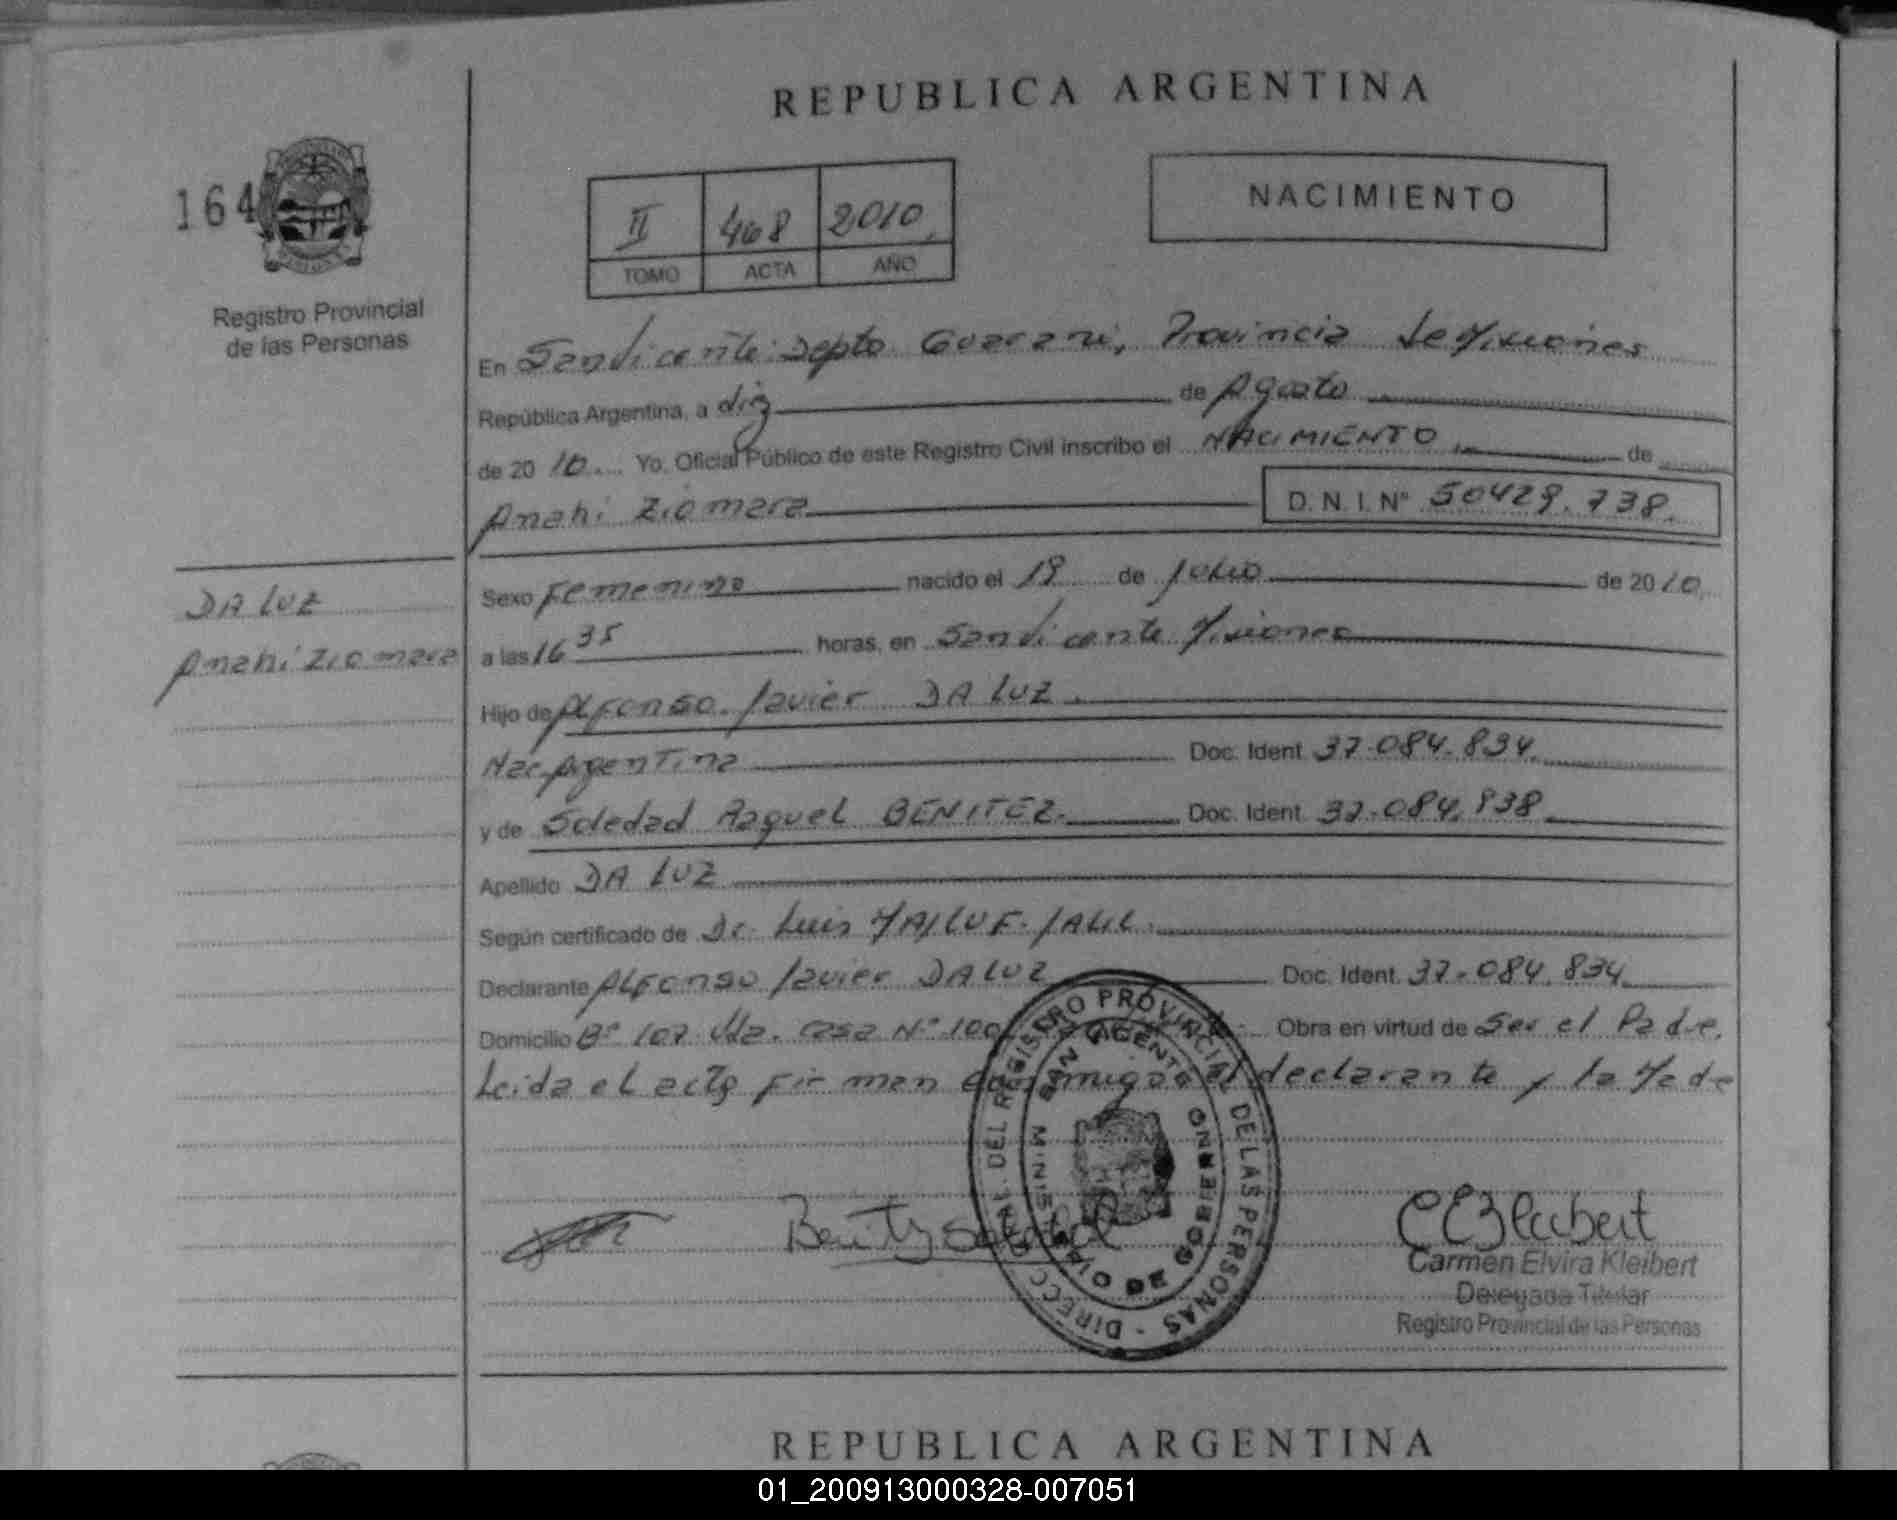 REPUBLICA ARGENTINA
164
II 468 2010
TOMO ACTA AÑO
NACIMIENTO
Registro Provincial
de las Personas
En San Vicente Depto Guaraní, Provincia de Misiones
República Argentina, a diez de Agosto
de 2010 Yo, Oficial Público de este Registro Civil inscribo el NACIMIENTO de
Anahi Ziomara D.N.I. Nº 50429.738
DA LUZ
Anahi Ziomara
Sexo Femenino nacido el 19 de Julio de 2010
a las 16 35 horas, en San Vicente Misiones
Hijo de Alfonso Javier DA LUZ
Nac. Argentina Doc. Ident. 37.084.834
y de Soledad Raquel BENITEZ Doc. Ident. 37.084.838
Apellido DA LUZ
Según certificado de Dr. Luis
Declarante Alfonso Javier DA LUZ Doc. Ident. 37.084.834
Domicilio Bº 107 Viv. casa Nº 100 Obra en virtud de Ser el Padre.
Leida el acta firman conmigo el declarante y la Madre
DIRECC. GRAL. DEL REGISTRO PROVINCIAL DE LAS PERSONAS -
SAN VICENTE
MINISTERIO DE GOBIERNO
Benitez Soledad
CEKleibert
Carmen Elvira Kleibert
Delegada Titular
Registro Provincial de las Personas
REPUBLICA ARGENTINA
01_200913000328-007051